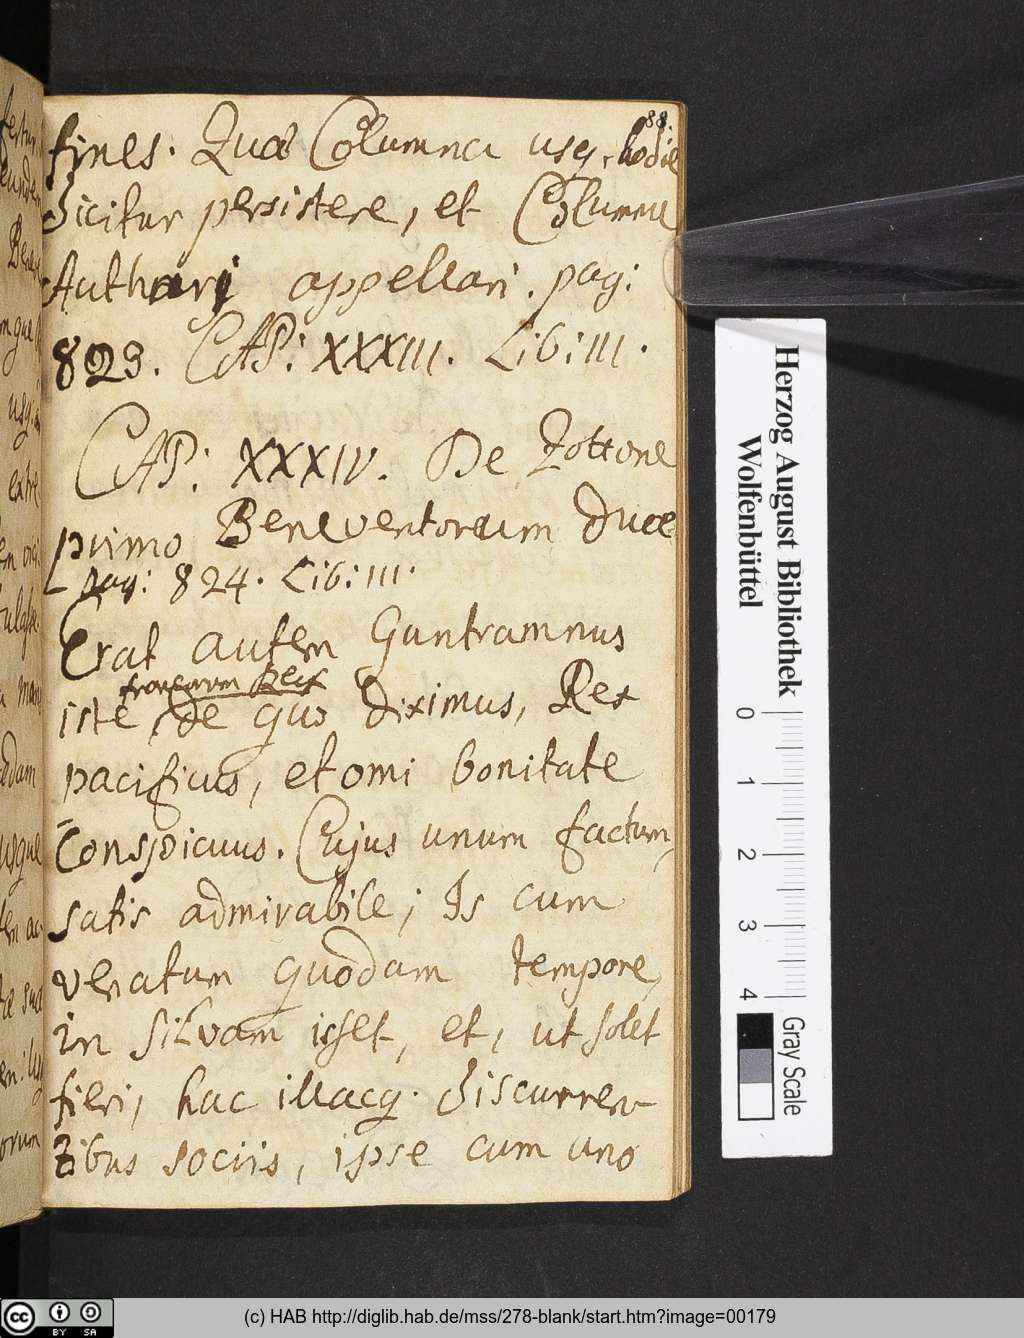 88.
fines. Quæ Columna usq. hodie
dicitur persistere, et Columna
Autharij appellari. pag:
829. CAP: XXXIII. Lib: III.
CAP: XXXIV. De Zottone
primo Beneventorum Duce
pag: 824. Lib: III.
Erat autem Guntramnus
francorum Rex
iste, de quo diximus, Rex
pacificus, et omi bonitate
Conspicuus. Cujus unum factum,
satis admirabile; Is cum
venatum quodam tempore,
in silvam isset, et, ut solet
fieri, hac illacq. discurren-
tibus sociis, ipse cum uno
Herzog August Bibliothek
Wolfenbüttel
0 1 2 3 4
Gray Scale
cc BY SA
(c) HAB http://diglib.hab.de/mss/278-blank/start.htm?image=00179